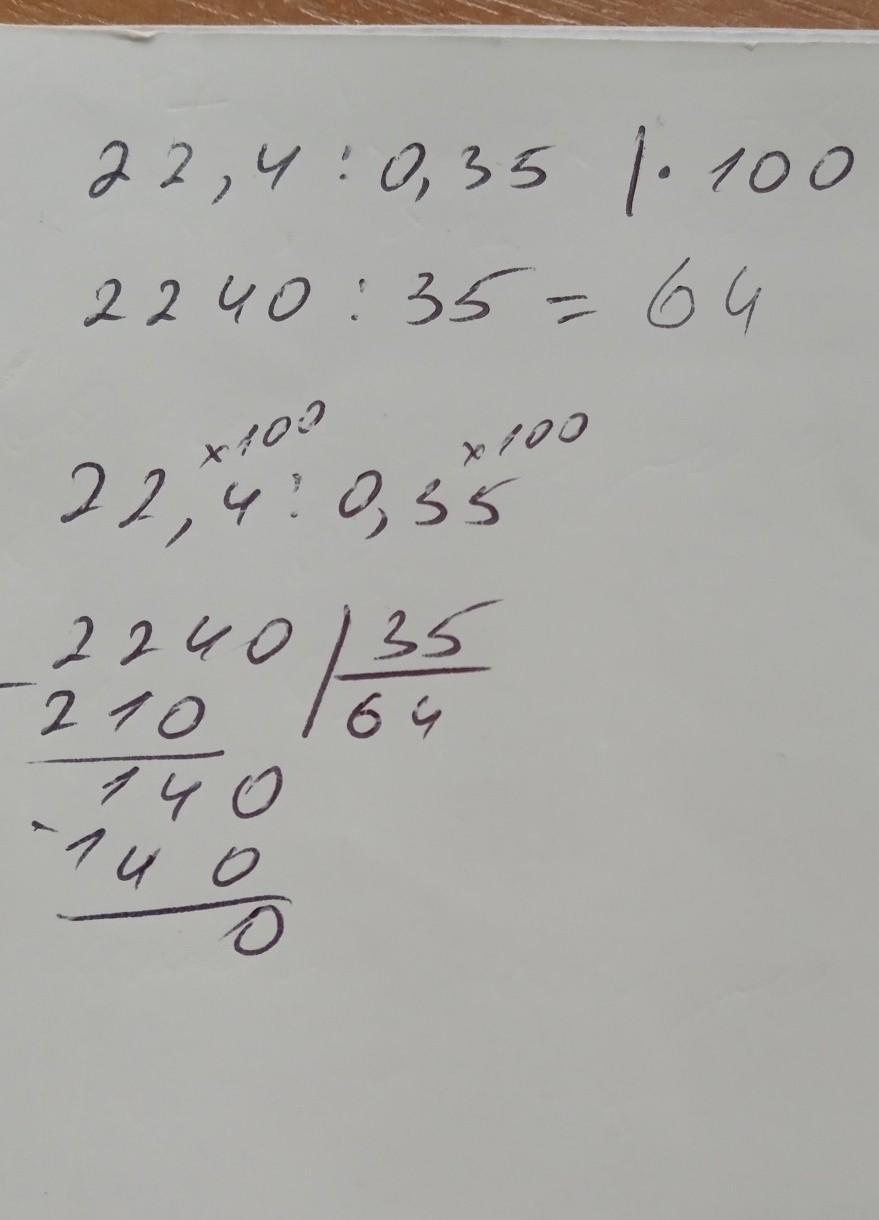 22,4 : 0,35 | · 100
2240 : 35 = 64
×100 ×100
22,4 : 0,35
2240 | 35
- 210 64
140
- 140
0